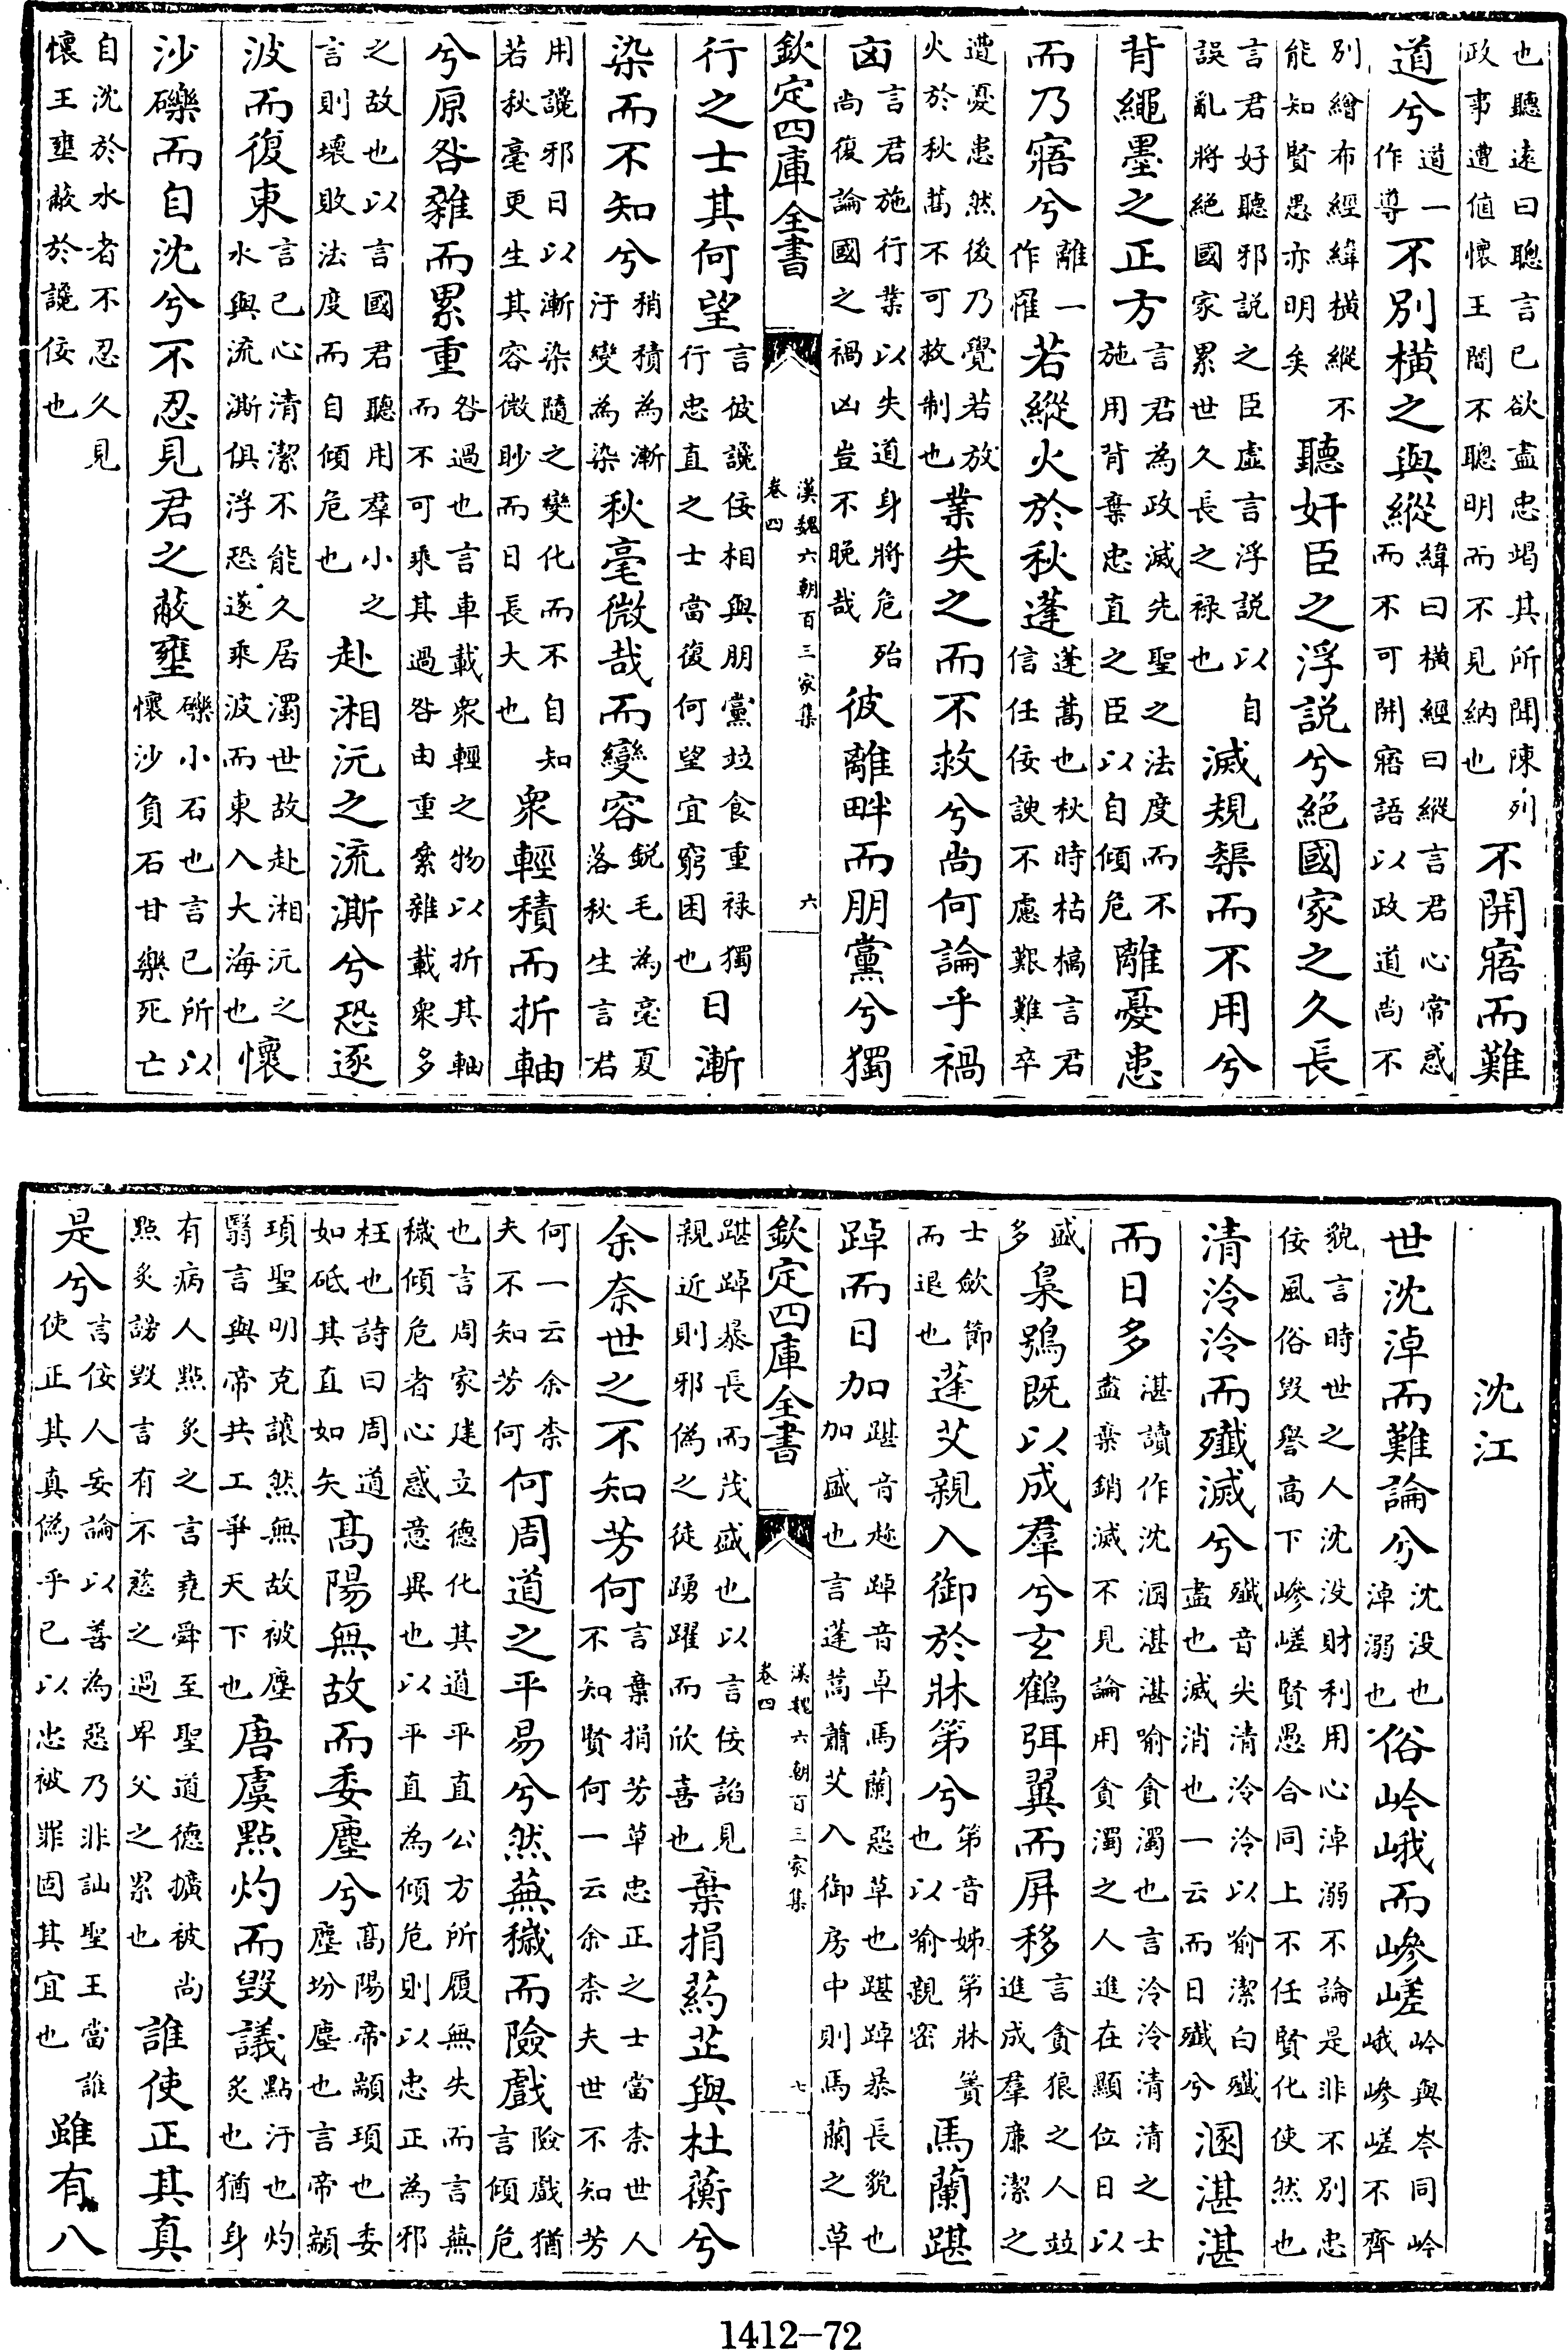 也聽遠曰聰言已欲盡忠竭其所聞陳列政事遭值懷王闇不聰明而不見納也不開寤而難
道兮道一作導不別橫之與縱緯曰橫經曰縱言君心常惑而不可開寤語以政道尚不
別繒布經緯橫縱不能知賢愚亦明矣聽奸臣之浮說兮絕國家之久長
言君好聽邪說之臣虛言浮說以自誤亂將絕國家累世久長之祿也滅規榘而不用兮
背繩墨之正方言君為政滅先聖之法度而不施用背棄忠直之臣以自傾危離憂患
而乃寤兮離一作罹若縱火於秋蓬蓬蒿也秋時枯槁言君信任佞諛不慮艱難卒
遭憂患然後乃覺若放火於秋蒿不可救制也業失之而不救兮尚何論乎禍
凶言君施行業以失道身將危殆尚復論國之禍凶豈不晚哉彼離畔而朋黨兮獨
欽定四庫全書 漢魏六朝百三家集 卷四 六
行之士其何望言彼讒佞相與朋黨竝食重祿獨行忠直之士當復何望宜窮困也日漸
染而不知兮稍積為漸汙變為染秋毫微哉而變容銳毛為毫夏落秋生言君
用讒邪日以漸染隨之變化而不自知若秋毫更生其容微眇而日長大也衆輕積而折軸
兮原咎雜而累重咎過也言車載衆輕之物以折其軸而不可乘其過咎由重絫雜載衆多
之故也以言國君聽用羣小之言則壞敗法度而自傾危也赴湘沅之流澌兮恐逐
波而復東言己心清潔不能久居濁世故赴湘沅之水與流澌俱浮恐遂乘波而東入大海也懷
沙礫而自沈兮不忍見君之蔽壅礫小石也言己所以懷沙負石甘樂死亡
自沈於水者不忍久見懷王壅蔽於讒佞也
沈江
世沈淖而難論兮沈没也淖溺也俗岒峨而嵾嵯岒與岑同岒峨嵾嵯不齊
貌言時世之人沈没財利用心淖溺不論是非不別忠佞風俗毀譽高下嵾嵯賢愚合同上不任賢化使然也
清泠泠而殲滅兮殲音尖清泠泠以喻潔白殲盡也滅消也一云而日殲兮溷湛湛
而日多湛讀作沈溷湛湛喻貪濁也言泠泠清清之士盡棄銷滅不見論用貪濁之人進在顯位日以
盛多梟鴞既以成羣兮玄鶴弭翼而屏移言貪狼之人竝進成羣廉潔之
士歛節而退也蓬艾親入御於牀第兮第音姊第牀簀也以喻親密馬蘭踸
踔而日加踸音趁踔音卓馬蘭惡草也踸踔暴長貌也加盛也言蓬蒿蕭艾入御房中則馬蘭之草
欽定四庫全書 漢魏六朝百三家集 卷四 七
踸踔暴長而茂盛也以言佞諂見親近則邪偽之徒踴躍而欣喜也棄捐葯芷與杜蘅兮
余奈世之不知芳何言棄捐芳草忠正之士當柰世人不知賢何一云余柰夫世不知芳
何一云余柰夫不知芳何何周道之平易兮然蕪穢而險戲險戲猶言傾危
也言周家建立德化其道平直公方所履無失而言蕪穢傾危者心惑意異也以平直為傾危則以忠正為邪
枉也詩曰周道如砥其直如矢高陽無故而委塵兮高陽帝顓頊也委塵坋塵也言帝顓
頊聖明克讓然無故被塵翳言與帝共工爭天下也唐虞點灼而毀議點汙也灼炙也猶身
有病人點炙之言堯舜至聖道德擴被尚點炙謗毀言有不慈之過卑父之累也誰使正其真
是兮言佞人妄論以善為惡乃非訕聖王當誰使正其真偽乎已以忠被罪固其宜也雖有八
1412-72